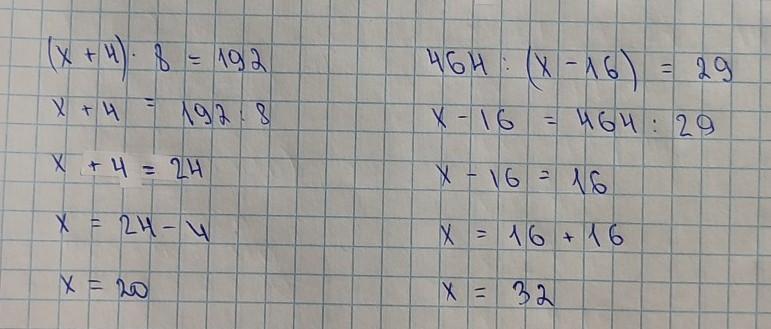 (x + 4) · 8 = 192
x + 4 = 192 : 8
x + 4 = 24
x = 24 - 4
x = 20
464 : (x - 16) = 29
x - 16 = 464 : 29
x - 16 = 16
x = 16 + 16
x = 32